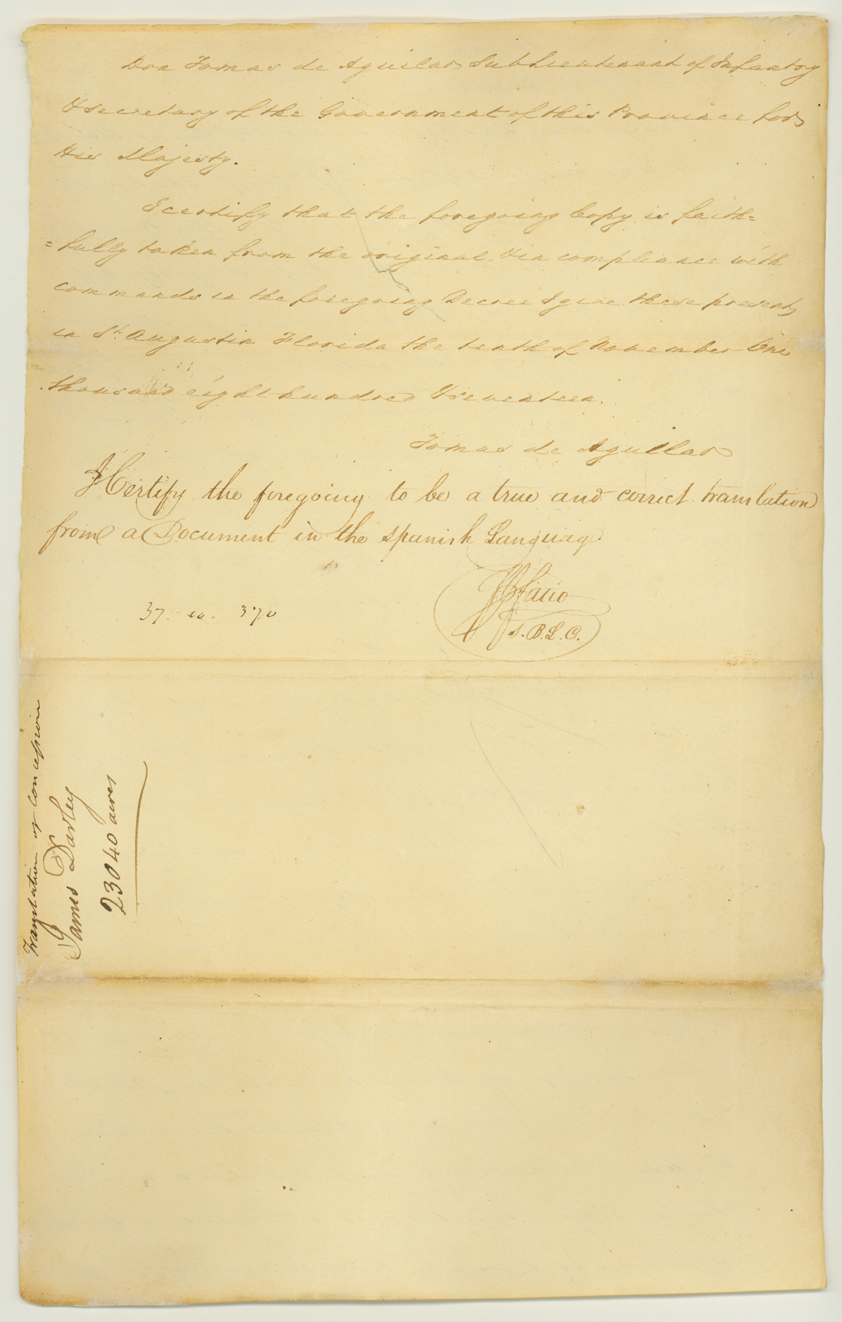 Don Tomas de Aguilar Sublieutenant of Infantry
& secretary of the Government of this Province for
His Majesty.
I certify that the foregoing Copy is faith=
=fully taken from the original. & in compliance with
commands in the foregoing Decree I give these presents
in St. Augustin Florida the tenth of November One
thousand eight hundred & seventeen.
Tomas de Aguilar
I Certify the foregoing to be a true and correct translation
from a Document in the Spanish Language
S.B.L.C.
37. 10. 370
Translation of Concession
James Darley
23040 acres